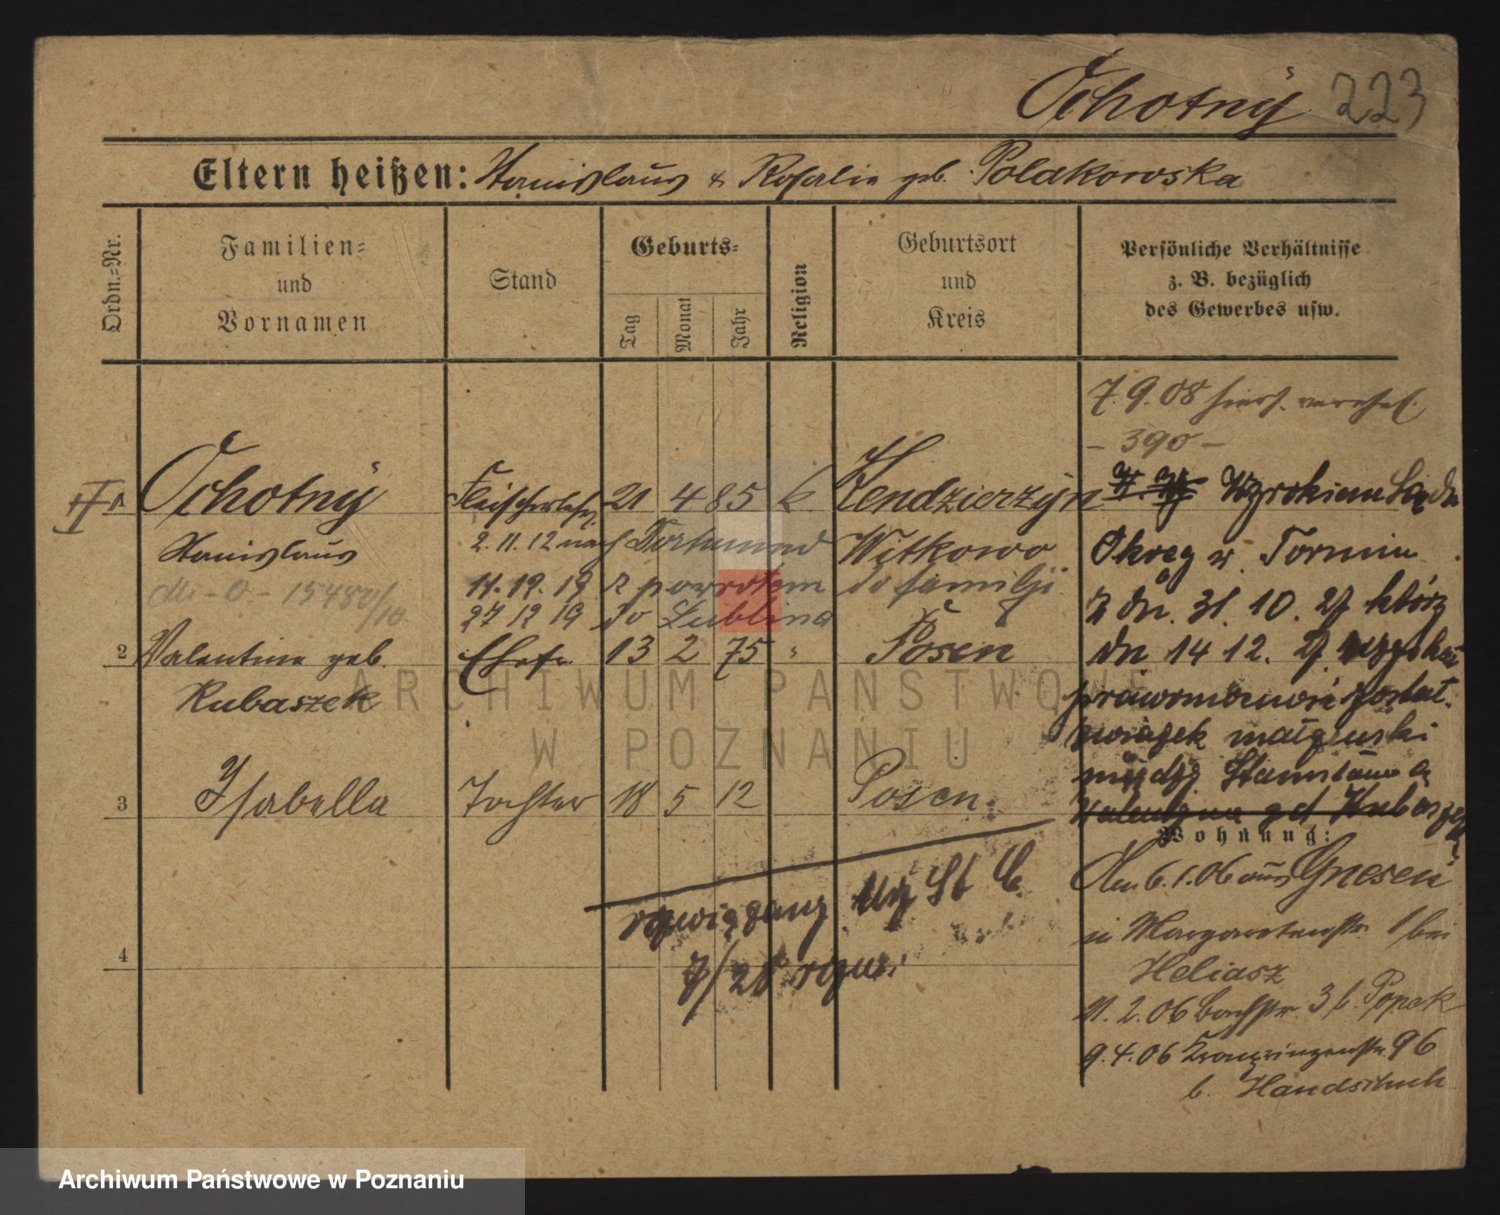 Ochotny 223
Eltern heißen: Stanislaus & Rosalie geb. Polakowska
Ordn.=Nr.
Familien=
und
Vornamen
Stand
Geburts=
Tag Monat Jahr
Religion
Geburtsort
und
Kreis
Persönliche Verhältnisse
z. B. bezüglich
des Gewerbes usw.
7.9.08 hiers. verehel.
- 390 -
Ochotny
Stanislaus
21 4 85 k.
Zendzierzyn
Witkowo
2.11.12 nach Dortmund
11.12.19 z powrotem do familji
27 12 19 do Lublina
Wyrokiem Sądu
Okręg w Toruniu
z dn. 31. 10. 27 który
dn 14 12. 27
prawomocność
związek małżeński
między Stanisławem a
Walentyną gd Kubaszek
2 Valentine geb. Ehefr. 13 2 75 " Posen
Rubaszek
3 Isabella Tochter 18 5 12 Posen.
4
Wohnung:
6.1.06 aus Gnesen
in Margaretenstr. 1 bei
Heliasz
11.2.06 Bachstr. 3 b. Popek
9.4.06 Kronprinzenstr. 96
b. Handschuh
ARCHIWUM PAŃSTWOWE
W POZNANIU
Archiwum Państwowe w Poznaniu